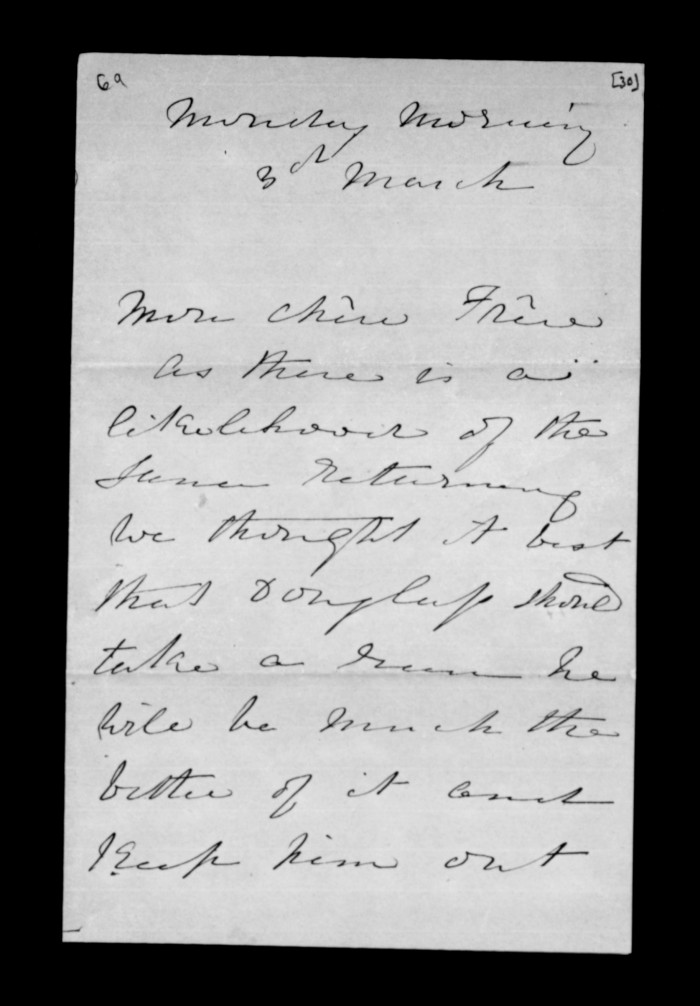 6a [30]
Monday Morning
3d March
Mon chère Frère
As there is a
likelihood of the
returning
we thought it best
that Douglass should
take a run he
will be much the
better of it and
Keep him out